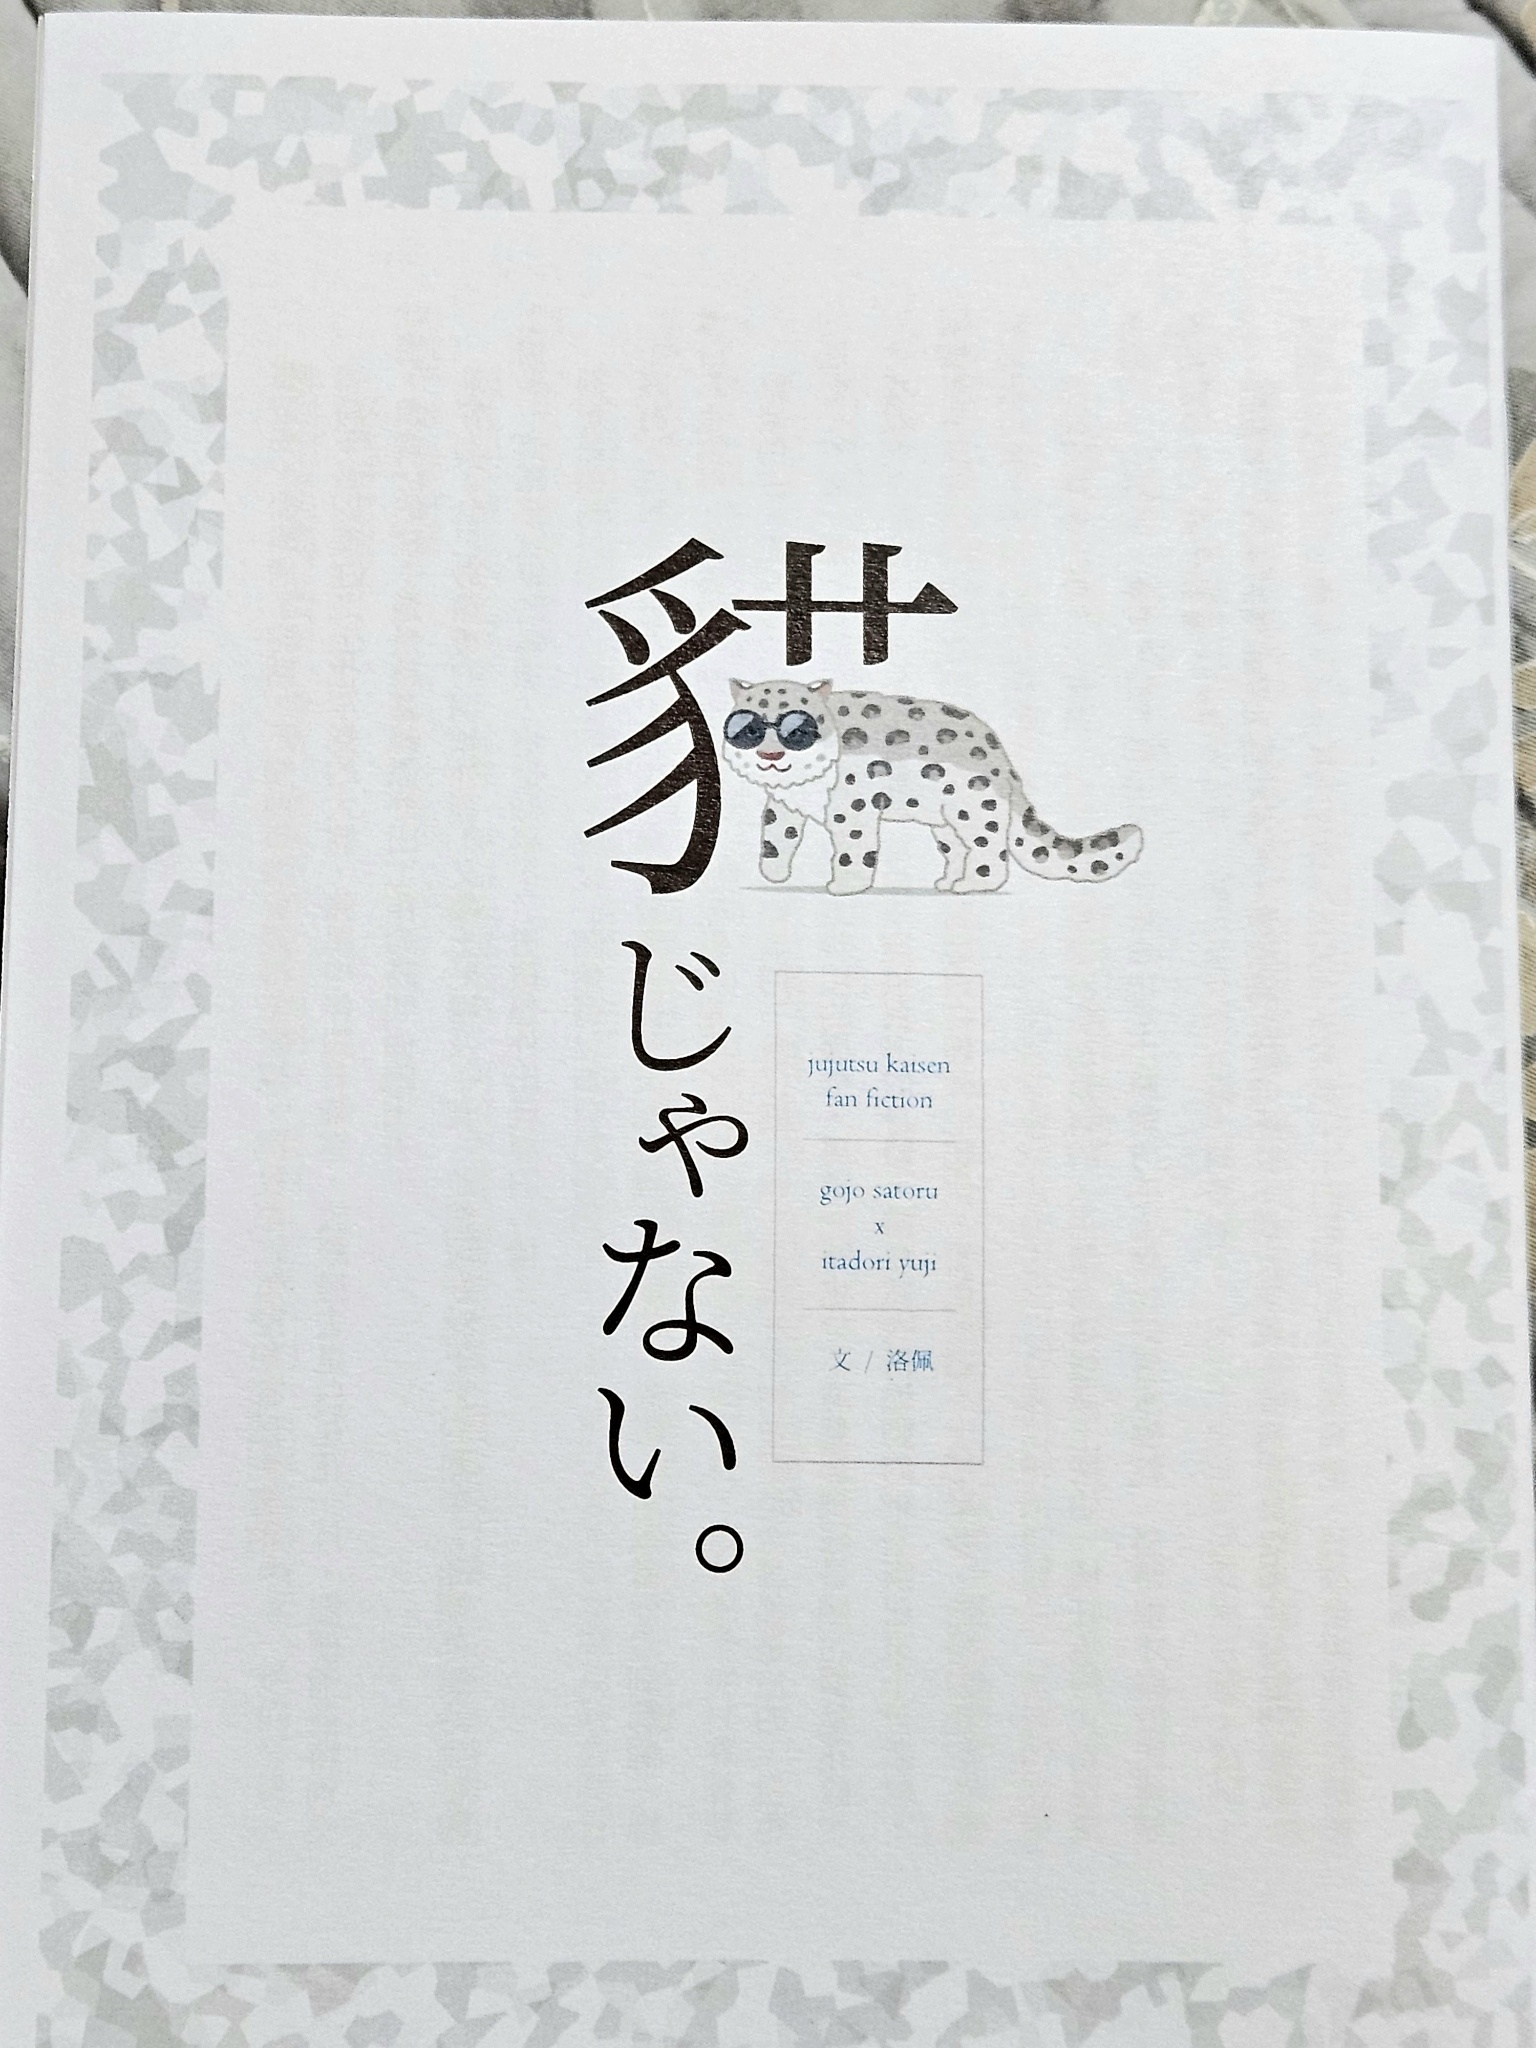 貓じゃない。
jujutsu kaisen
fan fiction
gojo satoru
x
itadori yuji
文 / 洛佩